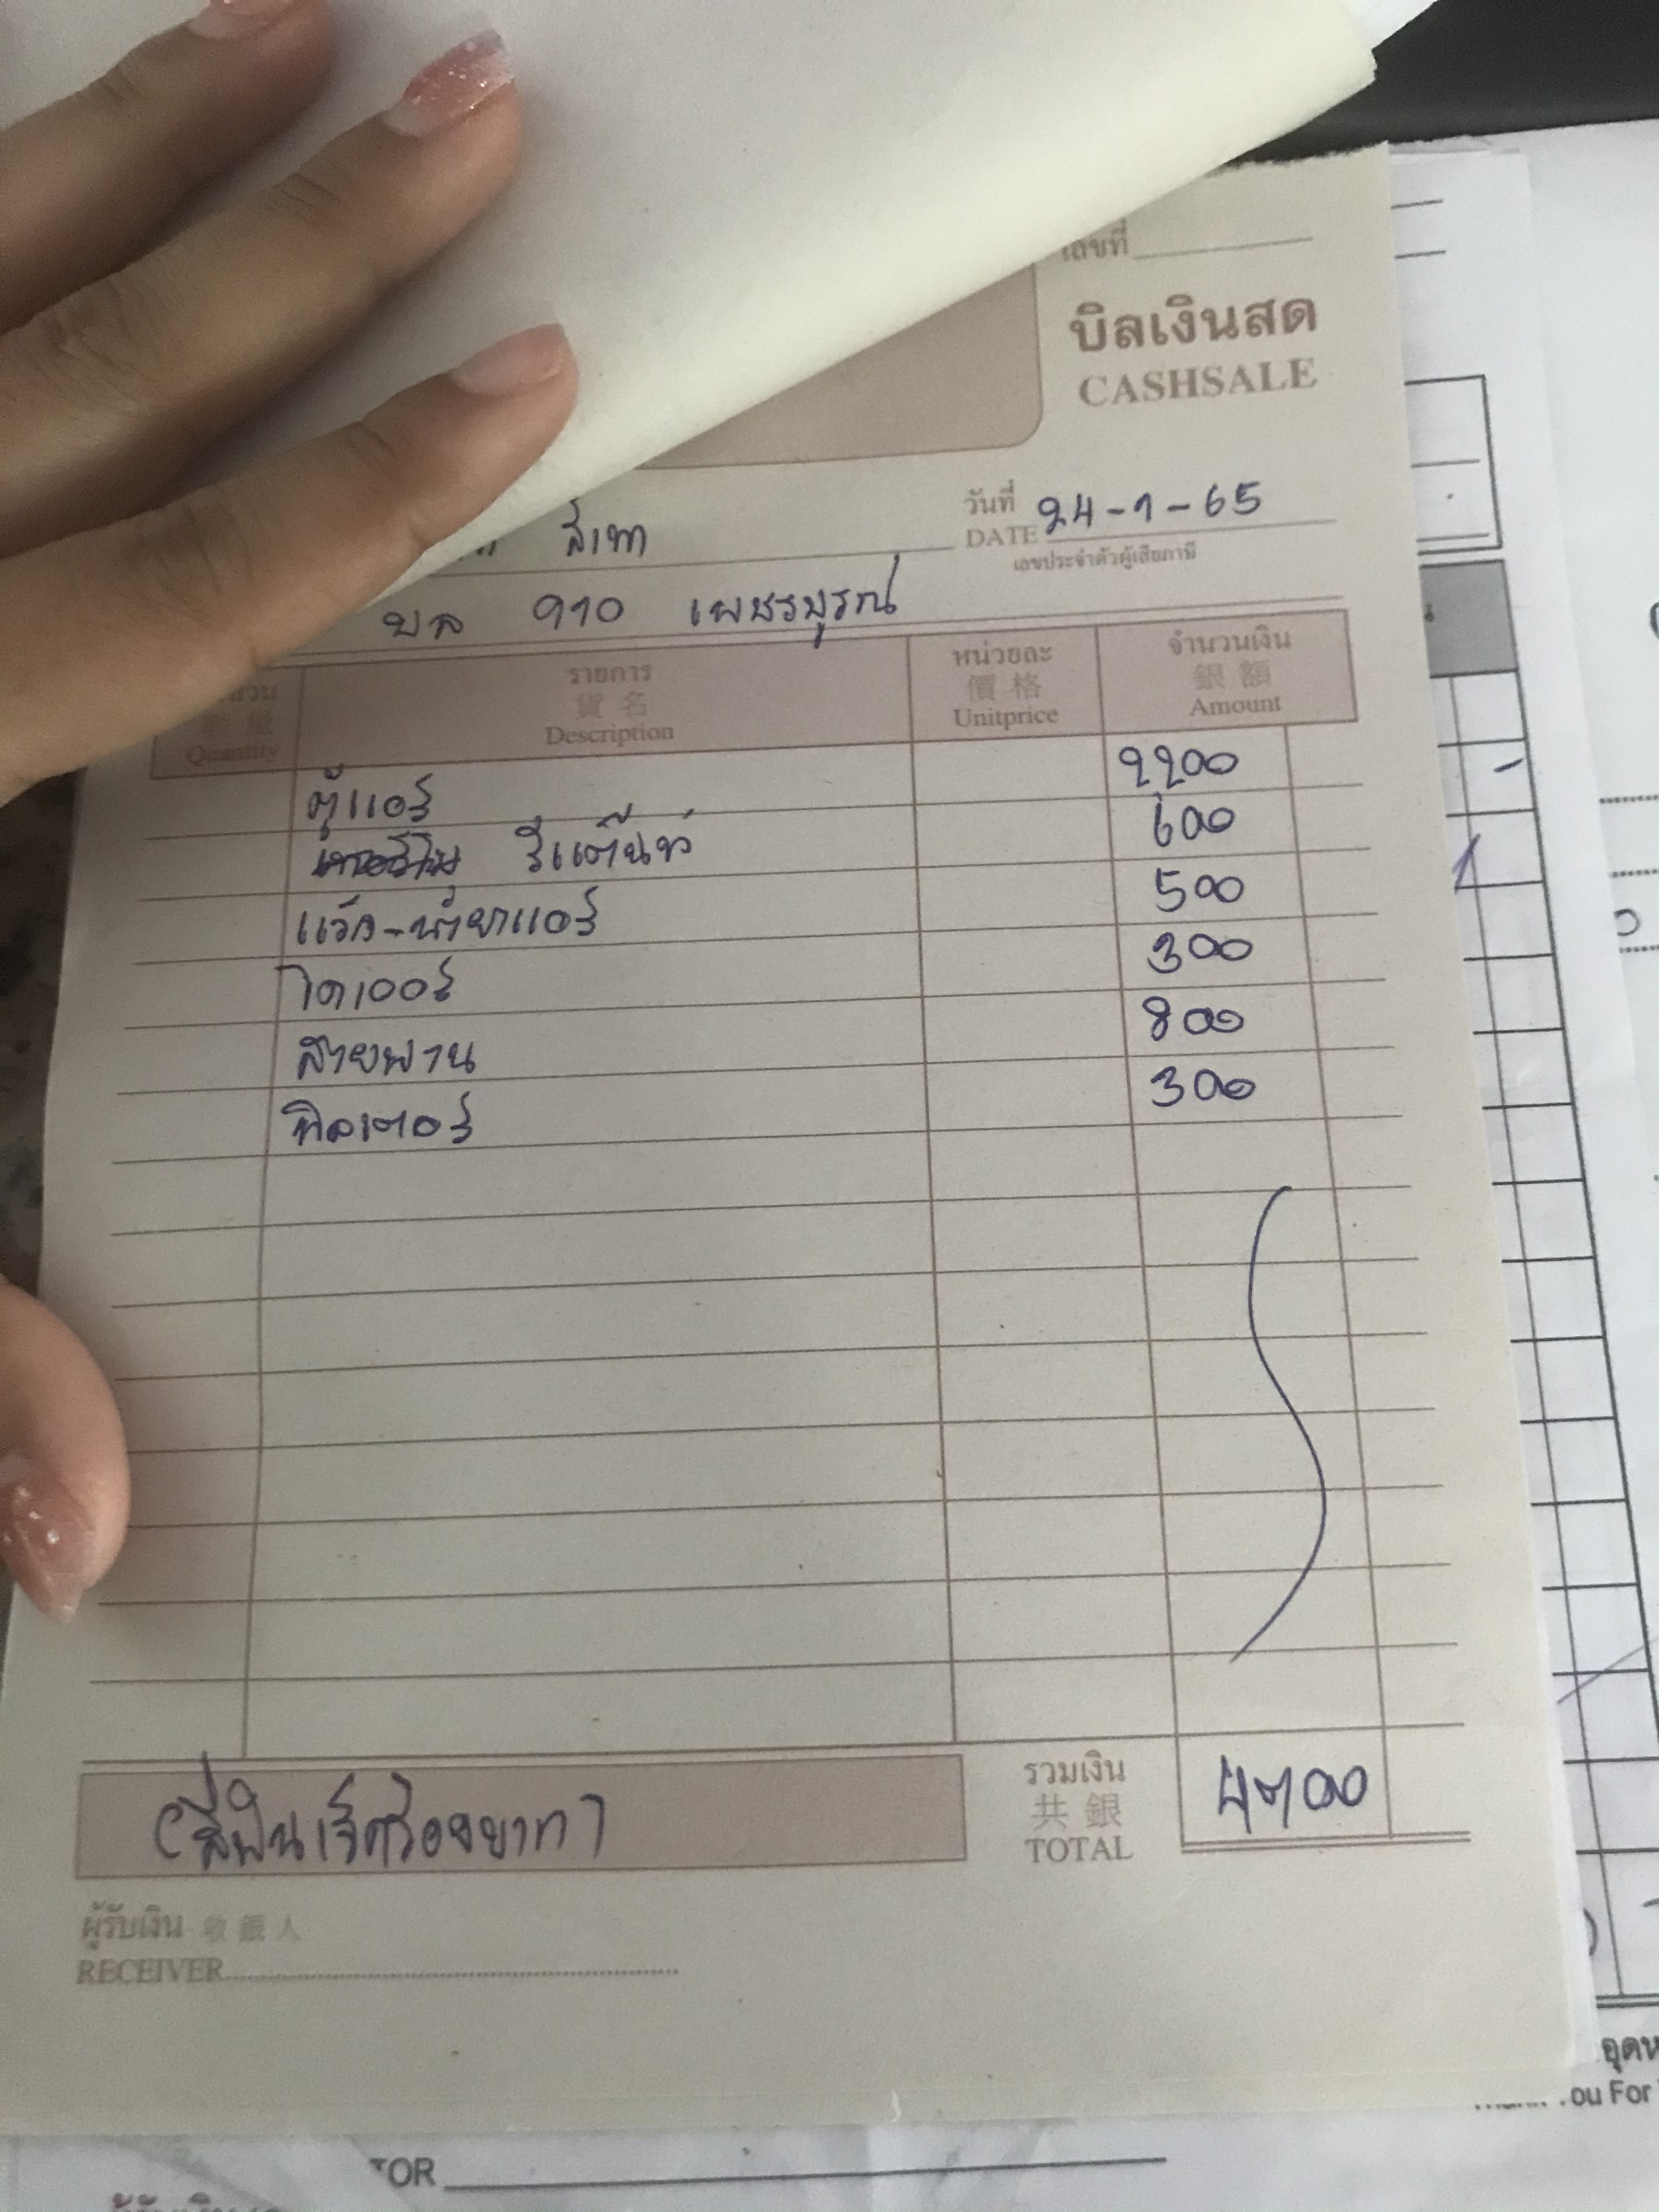 เลขที่
บิลเงินสด
CASHSALE
สีเทา
วันที่ 24-1-65
DATE
เลขประจำตัวผู้เสียภาษี
บล 910 เพชรบูรณ์
รายการ หน่วยละ จำนวนเงิน
貨名 價格 銀額
Quantity Description Unitprice Amount
ตู้แอร์ 2200
รีแต๊นท์ 600
แว๊ค-น้ำยาแอร์ 500
ไดเออร์ 300
สายพาน 800
ฟิลเตอร์ 300
(สี่พันเจ็ดร้อยบาท)
รวมเงิน 4700
共銀
TOTAL
ผู้รับเงิน 收銀人
RECEIVER
ou For
TOR